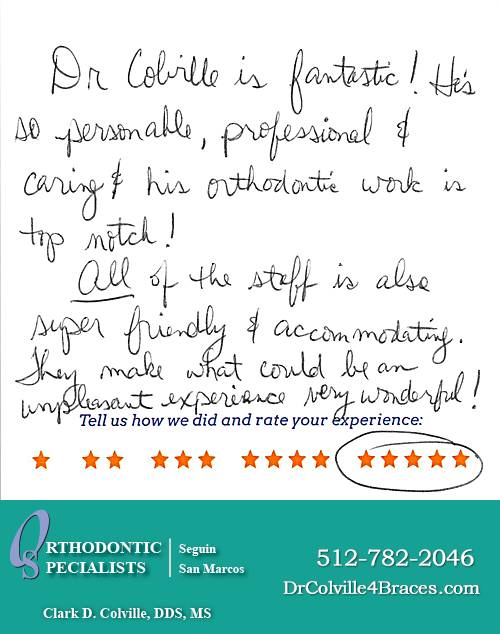 Dr Colville is fantastic! He's
so personable, professional &
caring & his orthodontic work is
top notch!
All of the staff is also
super friendly & accommodating.
They make what could be an
unpleasant experience very wonderful!
Tell us how we did and rate your experience:
OS ORTHODONTIC SPECIALISTS
Seguin
San Marcos
512-782-2046
DrColville4Braces.com
Clark D. Colville, DDS, MS